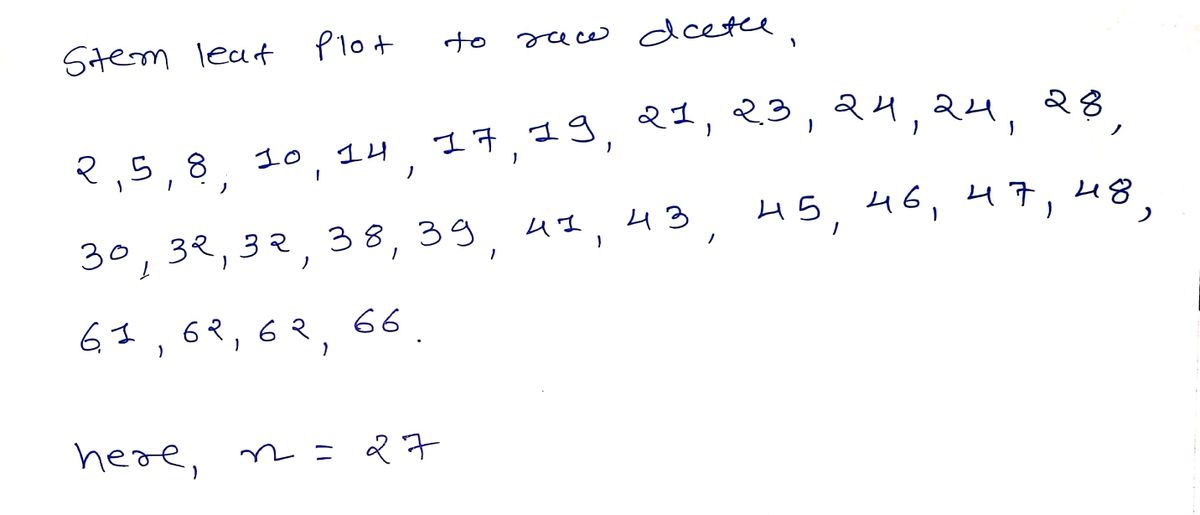 Stem leaf Plot to raw data,
2, 5, 8, 10, 14, 17, 19, 21, 23, 24, 24, 28,
30, 32, 32, 38, 39, 41, 43, 45, 46, 47, 48,
61, 62, 62, 66.
here, n = 27